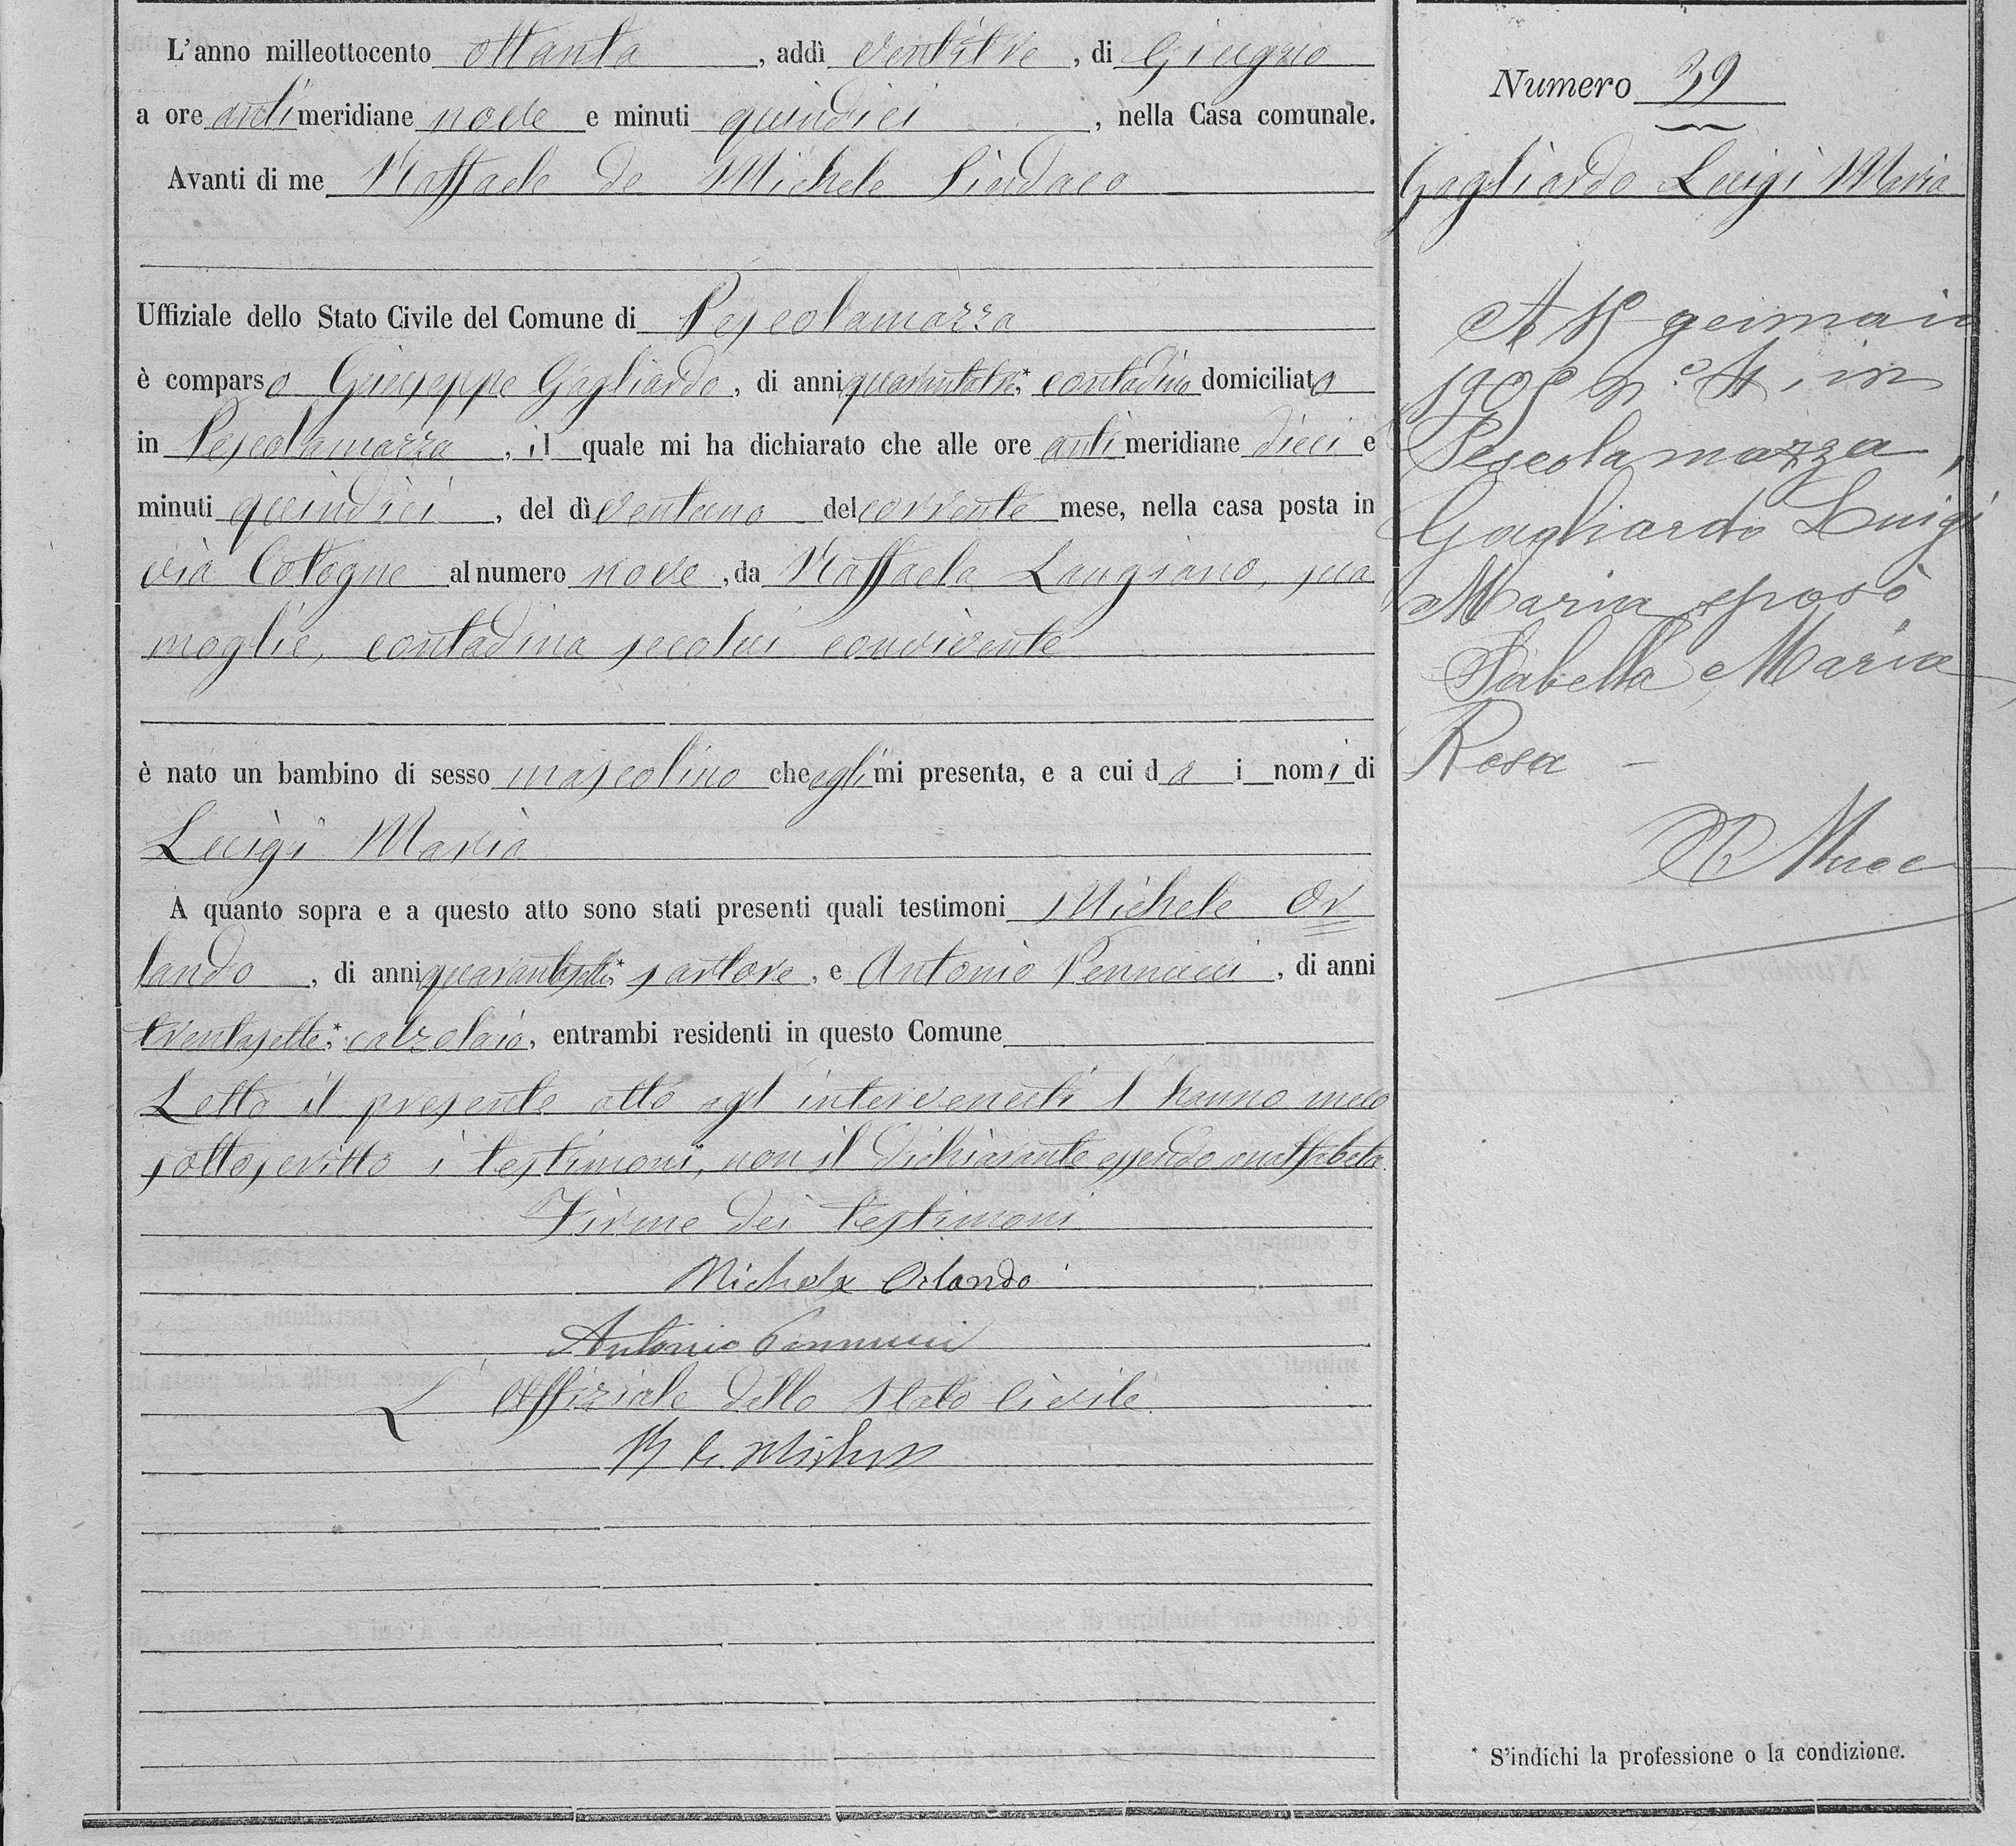 L'anno milleottocento ottanta, addì ventitre, di Giugno
a ore antimeridiane nove e minuti quindici, nella Casa comunale.
Avanti di me Raffaele de Michele Sindaco
Uffiziale dello Stato Civile del Comune di Pescolamazza
è comparso Giuseppe Gagliardo, di anni quarantatre*, contadino domiciliato
in Pescolamazza, il quale mi ha dichiarato che alle ore antimeridiane dieci e
minuti quindici, del dì ventuno del corrente mese, nella casa posta in
via Cologne al numero nove, da Raffaela Langiano, sua
moglie, contadina secolui convivente
è nato un bambino di sesso mascolino che egli mi presenta, e a cui dà i nomi di
Luigi Maria
A quanto sopra e a questo atto sono stati presenti quali testimoni Michele Or
lando, di anni quarantasette*, sartore, e Antonio Pennucci, di anni
trentasette*, calzolaio, entrambi residenti in questo Comune
Letto il presente atto agl'intervenuti l'hanno meco
sottoscritto i testimoni, non il dichiarante essendo analfabeta.
Firme dei testimoni
Michele Orlando
Antonio Pennucci
L'Uffiziale dello Stato Civile
R de Michele
Numero 39
Gagliardo Luigi Maria
gennaio
in
Pescolamazza,
Gagliardo Luigi
Maria sposò
Maria
Rosa
* S'indichi la professione o la condizione.